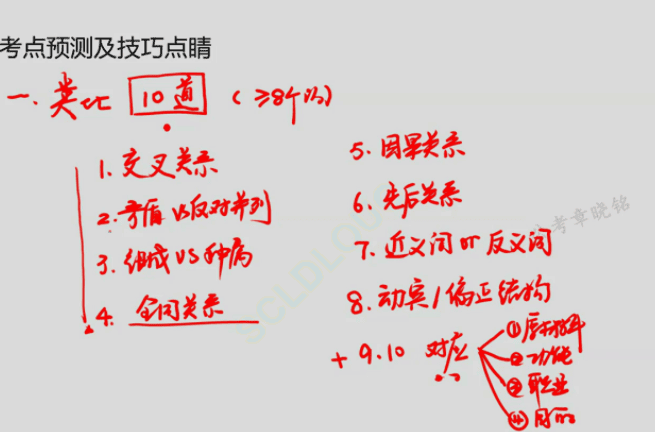 考点预测及技巧点睛
一、类比 10道 （≥8个的）
1. 交叉关系
2. 矛盾 VS 反对并列
3. 组成 VS 种属
4. 全同关系
5. 因果关系
6. 先后关系
7. 近义词 or 反义词
8. 动宾/偏正结构
+ 9.10 对应
①原材料
②功能
③职业
④目的
考章晓铭